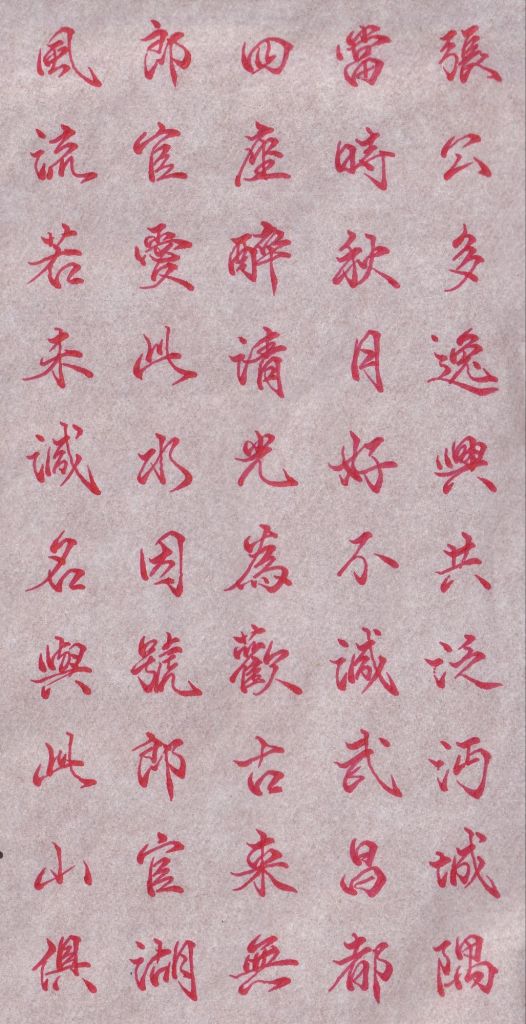 張公多逸興共泛沔城隅
當時秋月好不減武昌都
四座醉清光為歡古來無
郎官愛此水因號郎官湖
風流若未減名與此山俱